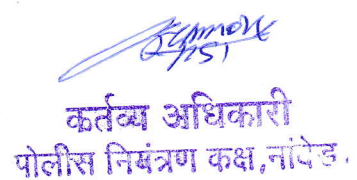 PSI
कर्तव्य अधिकारी
पोलीस नियंत्रण कक्ष,नांदेड.